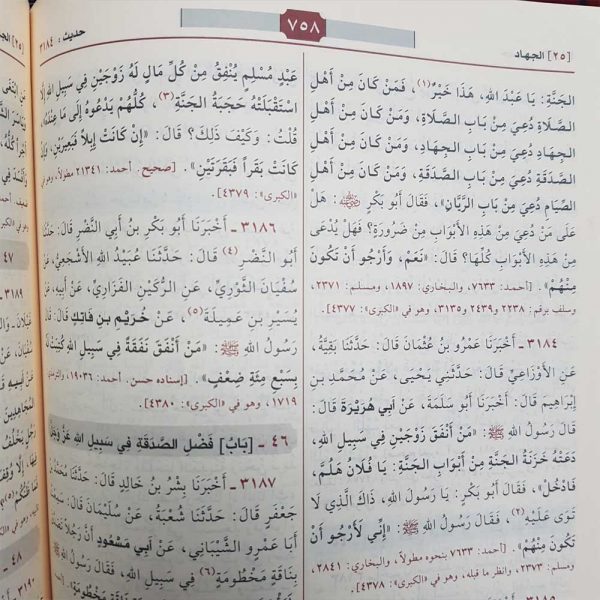 [٢٥] الجهاد
٧٥٨
حديث: ٣١٨٤
الجَنَّةِ: يَا عَبْدَ اللهِ، هَذَا خَيْرٌ(١)، فَمَنْ كَانَ مِنْ أَهْلِ
الصَّلَاةِ دُعِيَ مِنْ بَابِ الصَّلَاةِ، وَمَنْ كَانَ مِنْ أَهْلِ
الجِهَادِ دُعِيَ مِنْ بَابِ الجِهَادِ، وَمَنْ كَانَ مِنْ أَهْلِ
الصَّدَقَةِ دُعِيَ مِنْ بَابِ الصَّدَقَةِ، وَمَنْ كَانَ مِنْ أَهْلِ
الصِّيَامِ دُعِيَ مِنْ بَابِ الرَّيَّانِ»، فَقَالَ أَبُو بَكْرٍ ﷺ: هَلْ
عَلَى مَنْ دُعِيَ مِنْ هَذِهِ الأَبْوَابِ مِنْ ضَرُورَةٍ؟ فَهَلْ يُدْعَى
مِنْ هَذِهِ الأَبْوَابِ كُلِّهَا؟ قَالَ: «نَعَمْ، وَأَرْجُو أَنْ تَكُونَ
مِنْهُمْ». [أحمد: ٧٦٣٣، والبخاري: ١٨٩٧، ومسلم: ٢٣٧١،
وسلف برقم: ٢٢٣٨ و٢٤٣٩ و٣١٣٥، وهو في «الكبرى»: ٤٣٧٧].
٣١٨٤ ـ أَخْبَرَنَا عَمْرُو بنُ عُثْمَانَ قَالَ: حَدَّثَنَا بَقِيَّةُ،
عَنِ الأَوْزَاعِيِّ قَالَ: حَدَّثَنِي يَحْيَى، عَنْ مُحَمَّدِ بنِ
إِبْرَاهِيمَ قَالَ: أَخْبَرَنَا أَبُو سَلَمَةَ، عَنْ أَبي هُرَيْرَةَ قَالَ:
قَالَ رَسُولُ اللهِ ﷺ: «مَنْ أَنْفَقَ زَوْجَيْنِ فِي سَبِيلِ اللهِ،
دَعَتْهُ خَزَنَةُ الجَنَّةِ مِنْ أَبْوَابِ الجَنَّةِ: يَا فُلَانُ هَلُمَّ،
فَادْخُلْ»، فَقَالَ أَبُو بَكْرٍ: يَا رَسُولَ اللهِ، ذَاكَ الَّذِي لَا
تَوَى عَلَيْهِ(٢)، فَقَالَ رَسُولُ اللهِ ﷺ: «إِنِّي لَأَرْجُو أَنْ
تَكُونَ مِنْهُمْ». [أحمد: ٧٦٣٣ بنحوه مطولاً، والبخاري: ٢٨٤١،
ومسلم: ٢٣٧٣، وانظر ما قبله، وهو في «الكبرى»: ٤٣٧٨].
عَبْدٍ مُسْلِمٍ يُنْفِقُ مِنْ كُلِّ مَالٍ لَهُ زَوْجَيْنِ فِي سَبِيلِ اللهِ إِلَّا
اسْتَقْبَلَتْهُ حَجَبَةُ الجَنَّةِ(٣)، كُلُّهُمْ يَدْعُوهُ إِلَى مَا عِنْدَهُ»،
قُلْتُ: وَكَيْفَ ذَلِكَ؟ قَالَ: «إِنْ كَانَتْ إِبِلاً فَبَعِيرَيْنِ،
كَانَتْ بَقَراً فَبَقَرَتَيْنِ». [صحيح. أحمد: ٢١٣٤١ مطولاً، وهو في
«الكبرى»: ٤٣٧٩].
٣١٨٦ ـ أَخْبَرَنَا أَبُو بَكْرِ بنُ أَبِي النَّضْرِ قَالَ:
أَبُو النَّضْرِ(٤) قَالَ: حَدَّثَنَا عُبَيْدُ اللهِ الأَشْجَعِيُّ،
سُفْيَانَ الثَّوْرِيِّ، عَنِ الرُّكَيْنِ الفَزَارِيِّ، عَنْ أَبِيهِ، عَنْ
يُسَيْرِ بنِ عَمِيلَةَ(٥)، عَنْ خُرَيْمِ بنِ فَاتِكٍ قَالَ:
رَسُولُ اللهِ ﷺ: «مَنْ أَنْفَقَ نَفَقَةً فِي سَبِيلِ اللهِ كُتِبَتْ
بِسَبْعِ مِئَةِ ضِعْفٍ». [إسناده حسن. أحمد: ١٩٠٣٦،
١٧١٩، وهو في «الكبرى»: ٤٣٨٠].
٤٦ ـ [بَابُ] فَضْلِ الصَّدَقَةِ فِي سَبِيلِ اللهِ عَزَّ وَجَلَّ
٣١٨٧ ـ أَخْبَرَنَا بِشْرُ بنُ خَالِدٍ قَالَ: حَدَّثَنَا مُحَمَّدُ
جَعْفَرٍ قَالَ: حَدَّثَنَا شُعْبَةُ، عَنْ سُلَيْمَانَ قَالَ:
أَبَا عَمْرٍو الشَّيْبَانِيَّ، عَنْ أَبِي مَسْعُودٍ أَنَّ رَجُلاً
بِنَاقَةٍ مَخْطُومَةٍ(٦) فِي سَبِيلِ اللهِ، فَقَالَ رَسُولُ
٤٧
٣١٨٩
٤٨
٣١٩٠